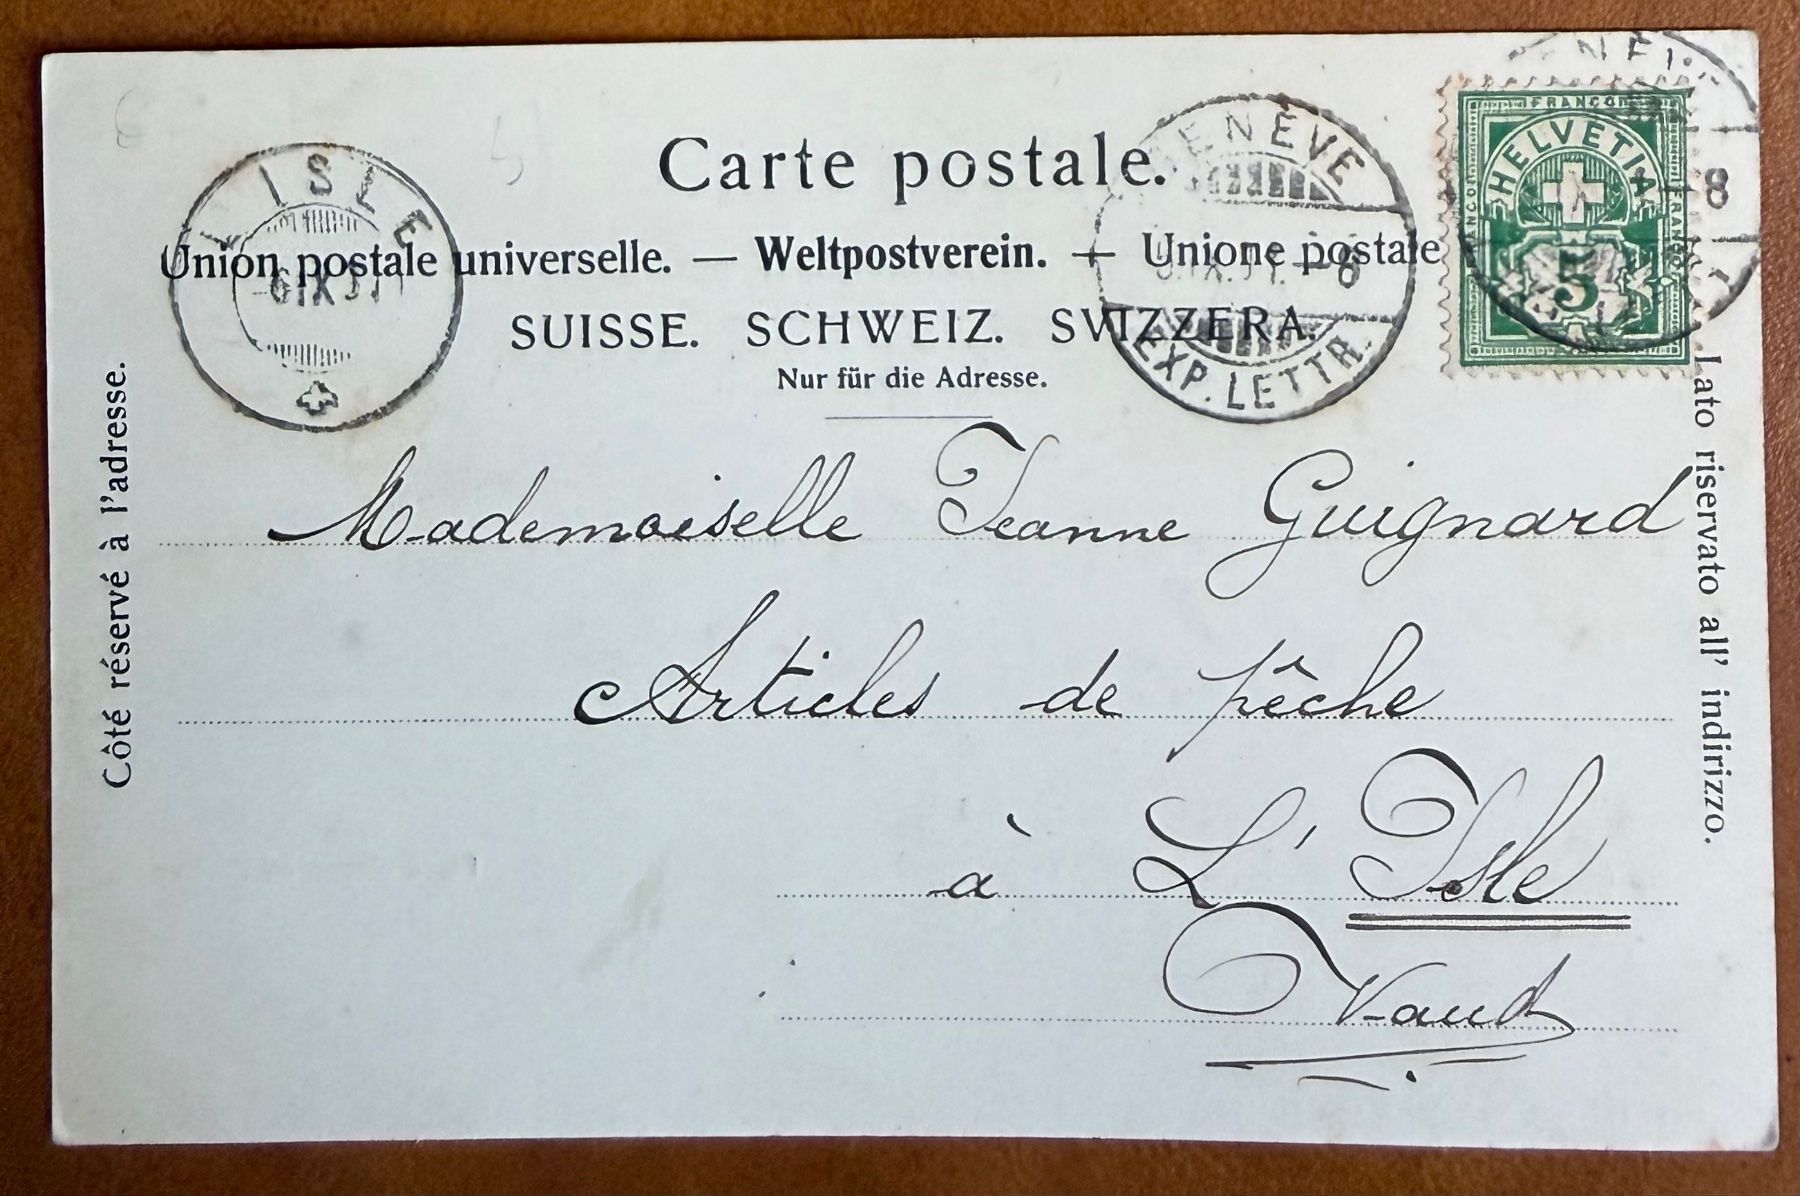 Carte postale.
Union postale universelle. — Weltpostverein. — Unione postale
SUISSE. SCHWEIZ. SVIZZERA.
Nur für die Adresse.
Côté réservé à l'adresse.
Lato riservato all' indirizzo.
L'ISLE
GENÈVE
EXP. LETTR.
FRANCO
HELVETIA
5
8
Mademoiselle Jeanne Guignard
Articles de pêche
à L'Isle
Vaud